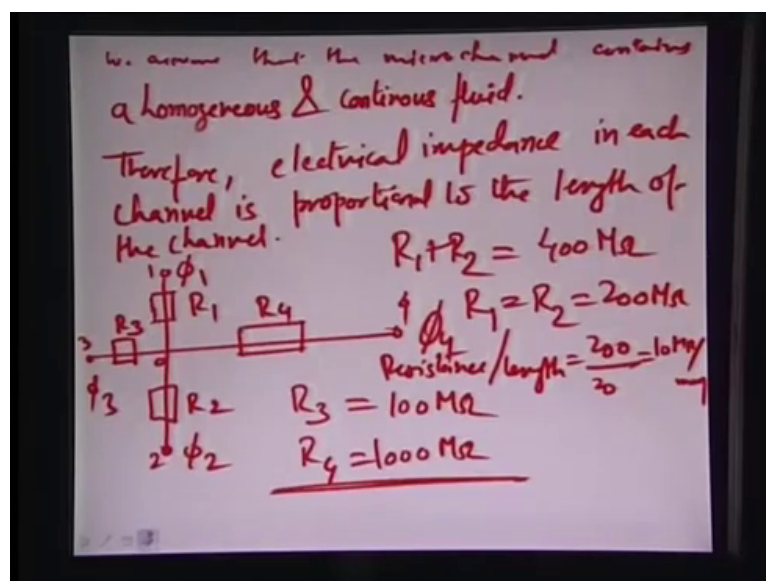 w. assume that the microchannel contains
a homogeneous & continous fluid.
Therefore, electrical impedance in each
channel is proportional to the length of
the channel.
R₁+R₂ = 400 MΩ
1 ϕ₁
R₁
R₄
4
R₁=R₂=200MΩ
3 R₃
ϕ₄
0
Resistance/length = 200/20 = 10 MΩ/
ϕ₃
R₂
R₃ = 100MΩ
2 ϕ₂
R₄ = 1000 MΩ